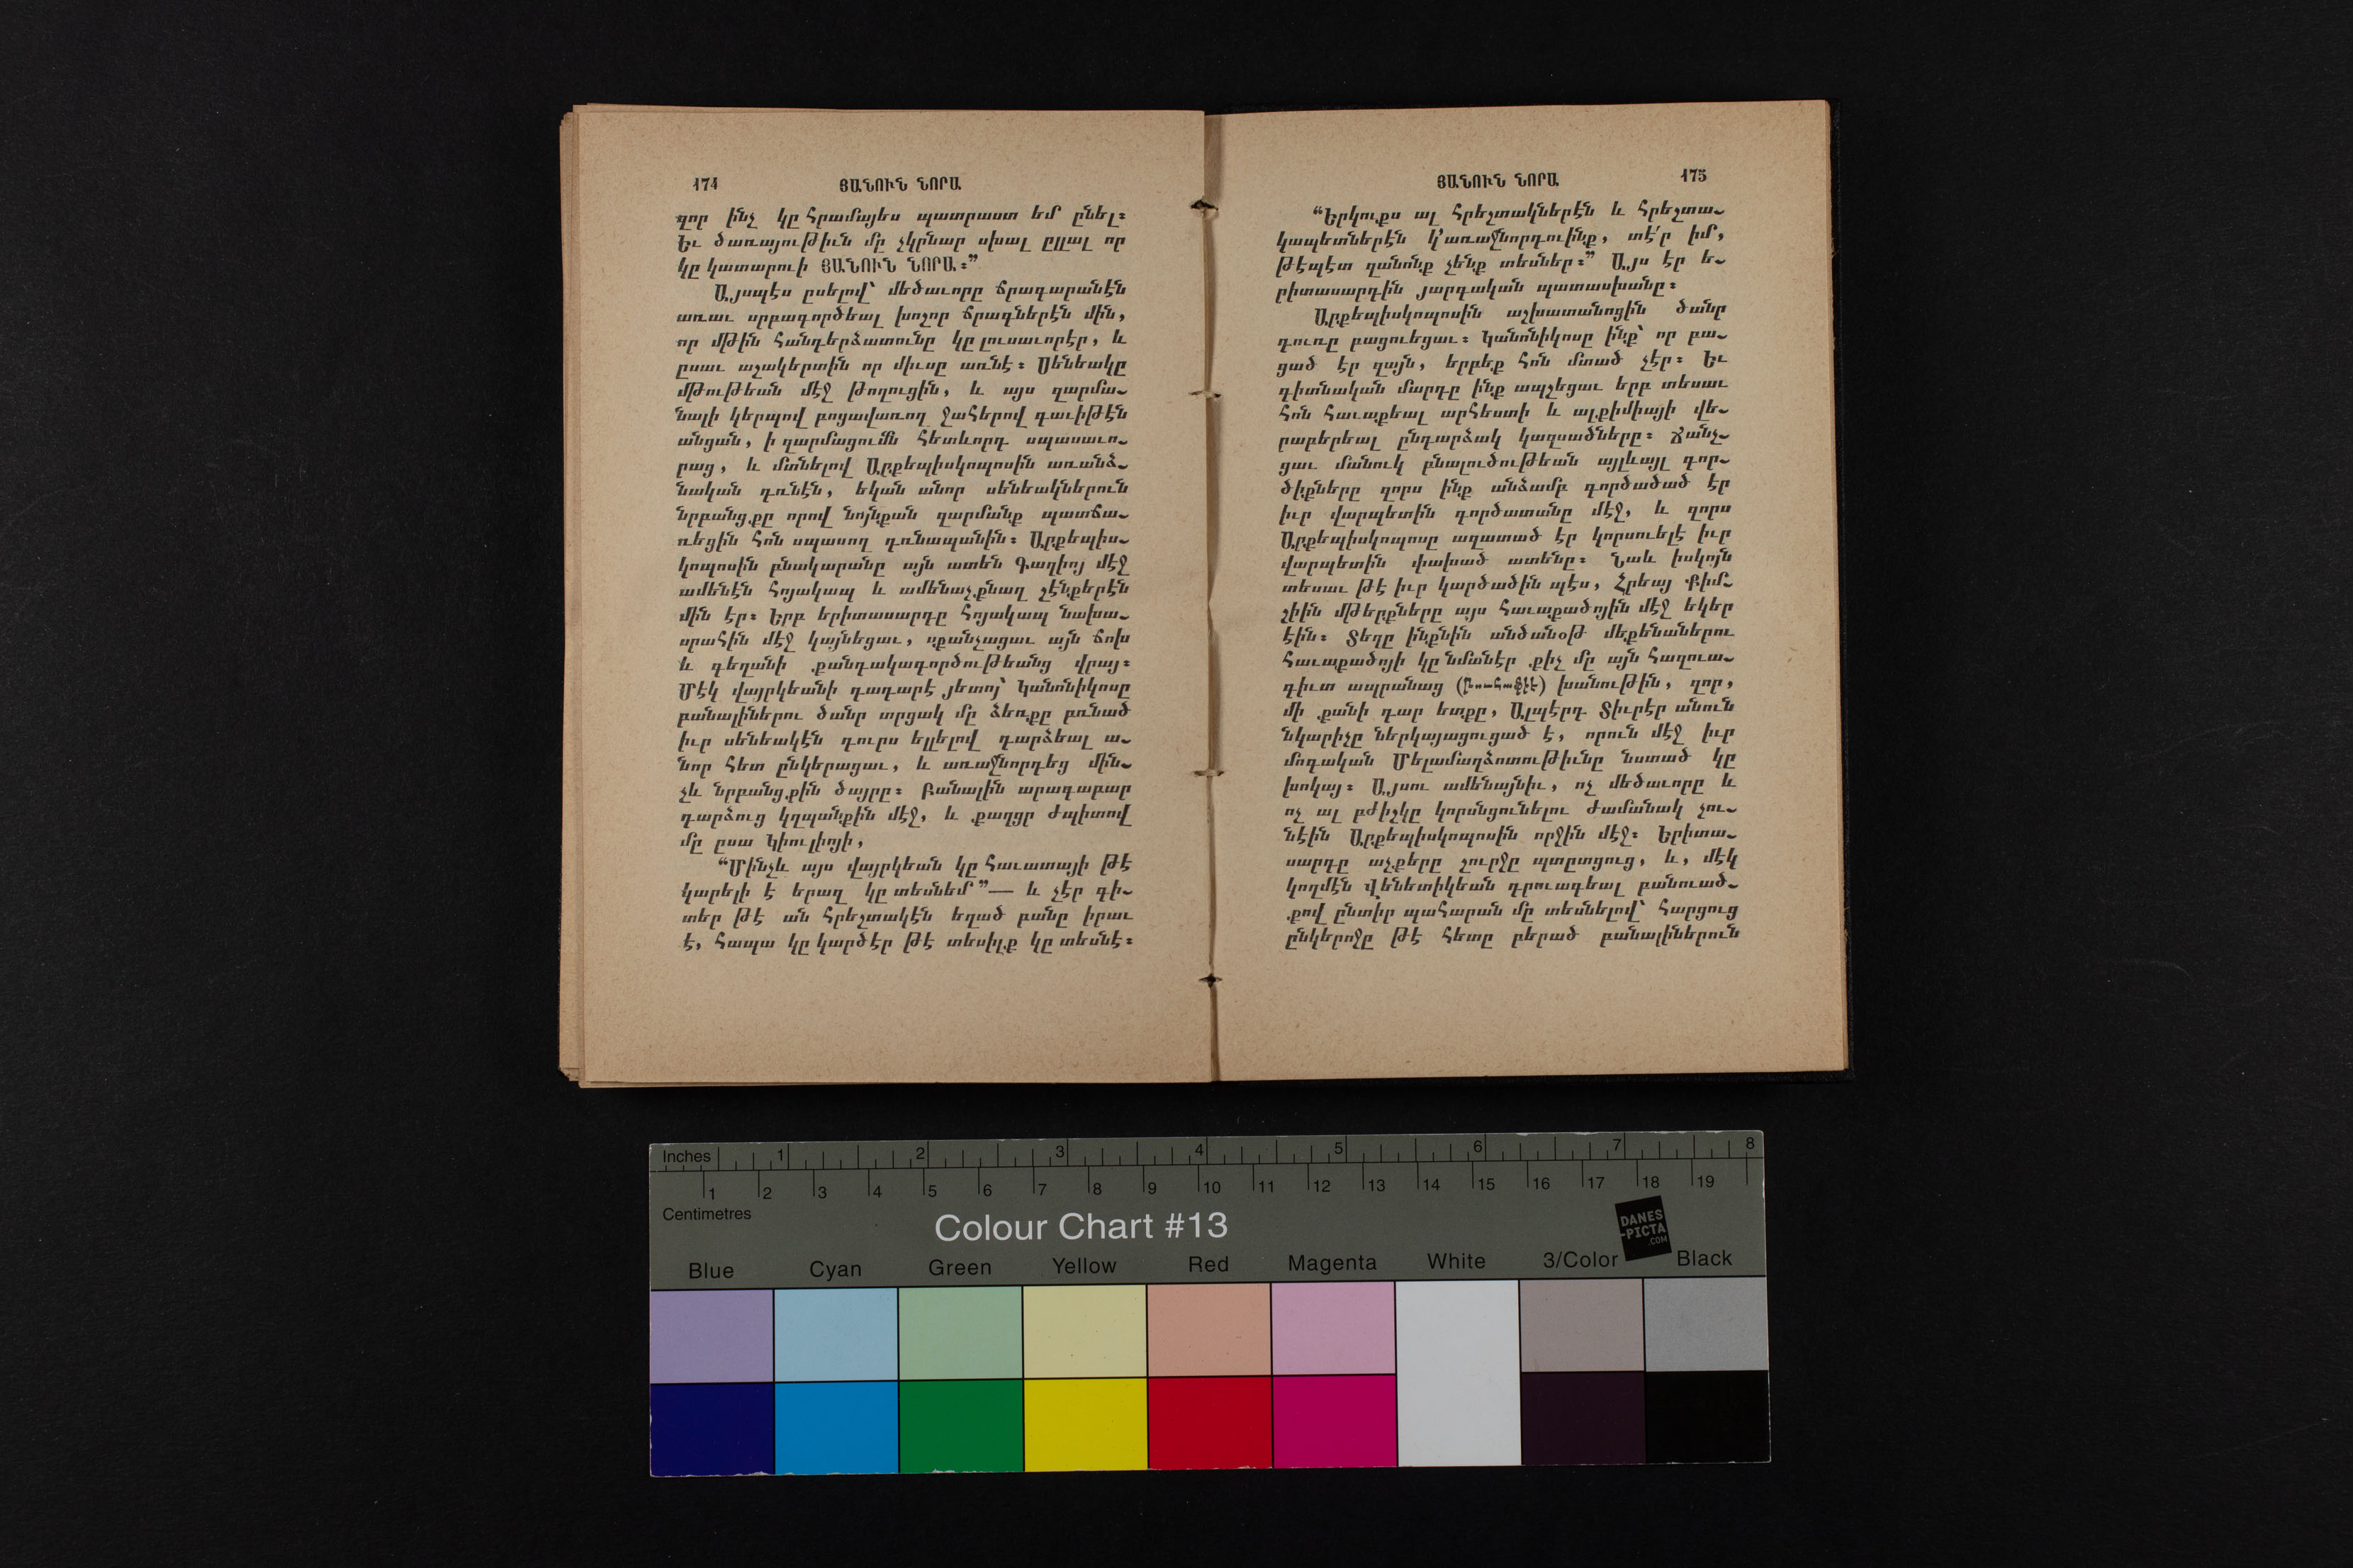 174
ՅԱՆՈՒՆ ՆՈՐԱ
զոր ինչ կը հրամայես պատրաստ եմ ընել։
Եւ ծառայութիւն մը չկրնար սխալ ըլլալ որ
կը կատարուի ՅԱՆՈՒՆ ՆՈՐԱ։”
Այսպէս ըսելով՝ մեծաւորը ճրագարանէն
առաւ սրբագործեալ խոշոր ճրագներէն մին,
որ մթին հանդերձատունը կը լուսաւորէր, և
ըսաւ աշակերտին որ միւսը առնէ։ Սենեակը
մթութեան մէջ թողուցին, և այս զարմա-
նալի կերպով բոցավառող ջահերով գաւիթէն
անցան, ի զարմացումն հետևորդ սպասաւո-
րաց, և մտնելով Արքեպիսկոպոսին առանձ-
նական դռնէն, եկան անոր սենեակներուն
նրբանցքը որով նոյնքան զարմանք պատճա-
ռեցին հոն սպասող դռնապանին։ Արքեպիս-
կոպոսին բնակարանը այն ատեն Գաղիոյ մէջ
ամենէն հոյակապ և ամենաշքնաղ շէնքերէն
մին էր։ Երբ երիտասարդը հոյակապ նախա-
սրահին մէջ կայնեցաւ, սքանչացաւ այն ճոխ
և գեղանի քանդակագործութեանց վրայ։
Մէկ վայրկեանի դադարէ յետոյ՝ Կանոնիկոսը
բանալիներու ծանր տրցակ մը ձեռքը բռնած
իւր սենեակէն դուրս ելլելով դարձեալ ա-
նոր հետ ընկերացաւ, և առաջնորդեց մին-
չև նրբանցքին ծայրը։ Բանալին արագաբար
դարձուց կղպանքին մէջ, և քաղցր ժպիտով
մը ըսա Կիուլիոյի,
“Մինչև այս վայրկեան կը հաւատայի թէ
կարելի է երազ կը տեսնեմ”— և չէր գի-
տեր թէ ան հրեշտակէն եղած բանը իրաւ
է, հապա կը կարծէր թէ տեսիլք կը տեսնէ։
ՅԱՆՈՒՆ ՆՈՐԱ
175
“Երկուքս ալ հրեշտակներէն և հրեշտա-
կապետներէն կ’առաջնորդուինք, տէ՛ր իմ,
թէպէտ զանոնք չենք տեսներ։” Այս էր ե-
րիտասարդին յարգական պատասխանը։
Արքեպիսկոպոսին աշխատանոցին ծանր
դուռը բացուեցաւ։ Կանոնիկոսը ինք՝ որ բա-
ցած էր զայն, երբեք հոն մտած չէր։ Եւ
գիտնական մարդը ինք ապշեցաւ երբ տեսաւ
հոն հաւաքեալ արհեստի և ալքիմիայի վե-
րաբերեալ ընդարձակ կազսածները։ Ճանչ-
ցաւ մանուկ բնալուծութեան այլևայլ գոր-
ծիքները զորս ինք անձամբ գործածած էր
իւր վարպետին գործատանը մէջ, և զորս
Արքեպիսկոպոսը ազատած էր կորսուելէ իւր
վարպետին փախած ատենը։ Նաև իսկոյն
տեսաւ թէ իւր կարծածին պէս, Հրեայ Քիմ-
չիին մթերքները այս հաւաքածոյին մէջ եկեր
էին։ Տեղը ինքնին անծանօթ մեքենաներու
հաւաքածոյի կը նմանէր քիչ մը այն հազուա-
գիւտ ապրանաց խանութին, զոր,
մի քանի դար ետքը, Ալպէրդ Տիւրէր անուն
նկարիչը ներկայացուցած է, որուն մէջ իւր
մոգական Մելամաղձոտութիւնը նստած կը
խոկայ։ Այսու ամենայնիւ, ոչ մեծաւորը և
ոչ ալ բժիշկը կորսնցունելու ժամանակ չու-
նէին Արքեպիսկոպոսին որջին մէջ։ Երիտա-
սարդը աչքերը չուրջը պտըտցուց, և, մէկ
կողմէն Վենետիկեան դրուագեալ բանուած-
քով ընտիր պահարան մը տեսնելով՝ հարցուց
ընկերոջը թէ հետը բերած բանալիներուն
Inches 1 2 3 4 5 6 7 8
1 2 3 4 5 6 7 8 9 10 11 12 13 14 15 16 17 18 19
Centimetres
Colour Chart #13
DANES
-PICTA
.COM
Blue Cyan Green Yellow Red Magenta White 3/Color Black